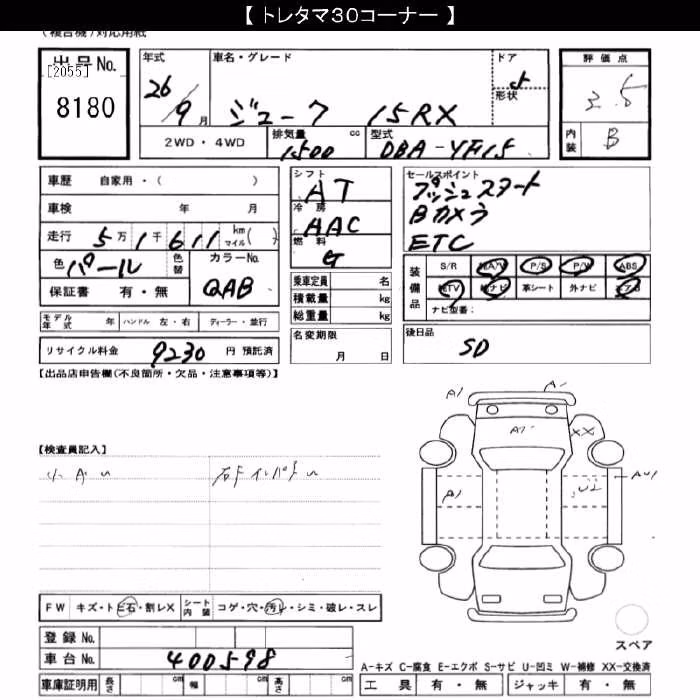 【 トレタマ30コーナー 】
(複合機)対応用紙
出品No.
[2055]
8180
年式 26/9月
車名・グレード ジューク 15RX
ドア 5
形状
評価点 3.5
内装 B
2WD・4WD
排気量 1500 cc
型式 DBA-YF15
車歴 自家用・( )
車検 年 月
走行 5万1千611 km マイル( )
色 パール 色替
カラーNo. QAB
保証書 有・無
シフト AT
冷房 AAC
燃料 G
乗車定員 名
積載量 kg
総重量 kg
セールスポイント
プッシュスタート
Bカメラ
ETC
装備品 S/R 純A/W P/S P/W ABS
純TV 純ナビ 革シート 外ナビ エアB
ナビ型番:
モデル年式 年 ハンドル 左・右 ディーラー・並行
リサイクル料金 9230 円 預託済
名変期限 月 日
後日品 SD
【出品店申告欄(不良箇所・欠品・注意事項等)】
【検査員記入】
A1 A1
XX
A1
U2
FW キズ・トビ石・割レX シート内装 コゲ・穴・汚レ・シミ・破レ・スレ
登録No.
車台No. 400598
車庫証明用 長さ cm 幅 cm 高さ cm
スペア
A-キズ C-腐食 E-エクボ S-サビ U-凹ミ W-補修 XX-交換済
工具 有・無 ジャッキ 有・無